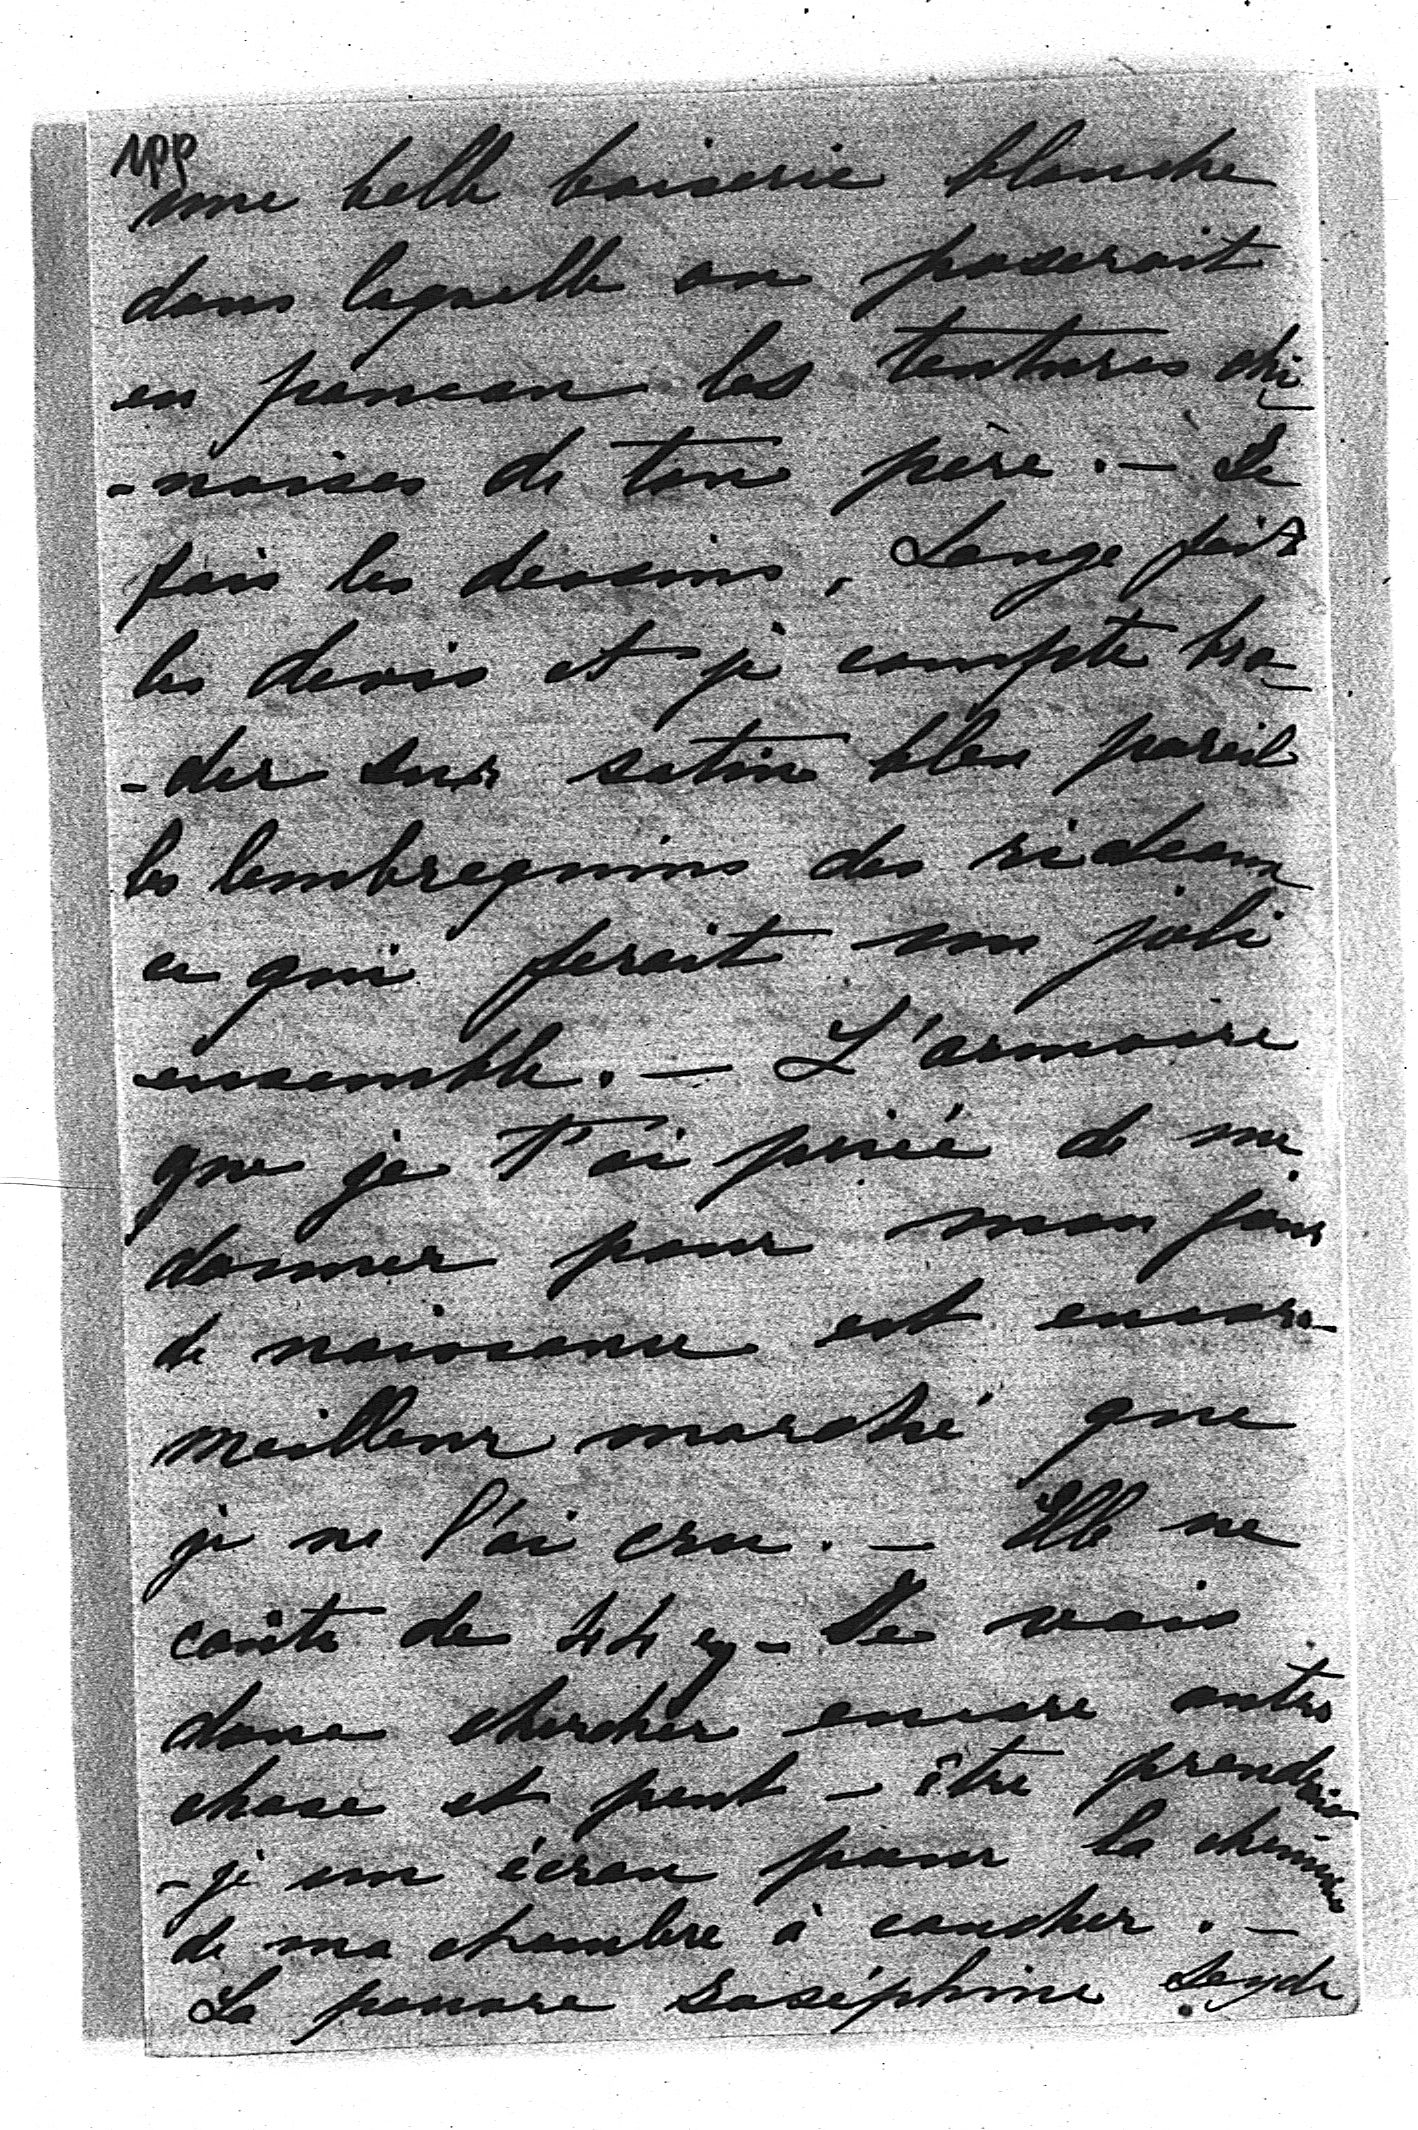 une belle boiserie blanche
dans laquelle on poserait
en paneau les tentures chi
-noises de ton père. — Je
fais les dessins, Lange fait
les devis et je compte bro-
-der sur satin bleu pareil
les lembrequins des rideaux
ce qui ferait un joli
ensemble. — L'armoire
que je t'ai priée de me
donner pour mon jour
de naissance est encore
meilleur marché que
je ne l'ai cru. — Elle ne
coûte de 44 - Je vais
donc chercher encore autre
chose et peut-être prendrai
-je un écran pour la cheminée
de ma chambre à coucher. —
La pauvre Joséphine